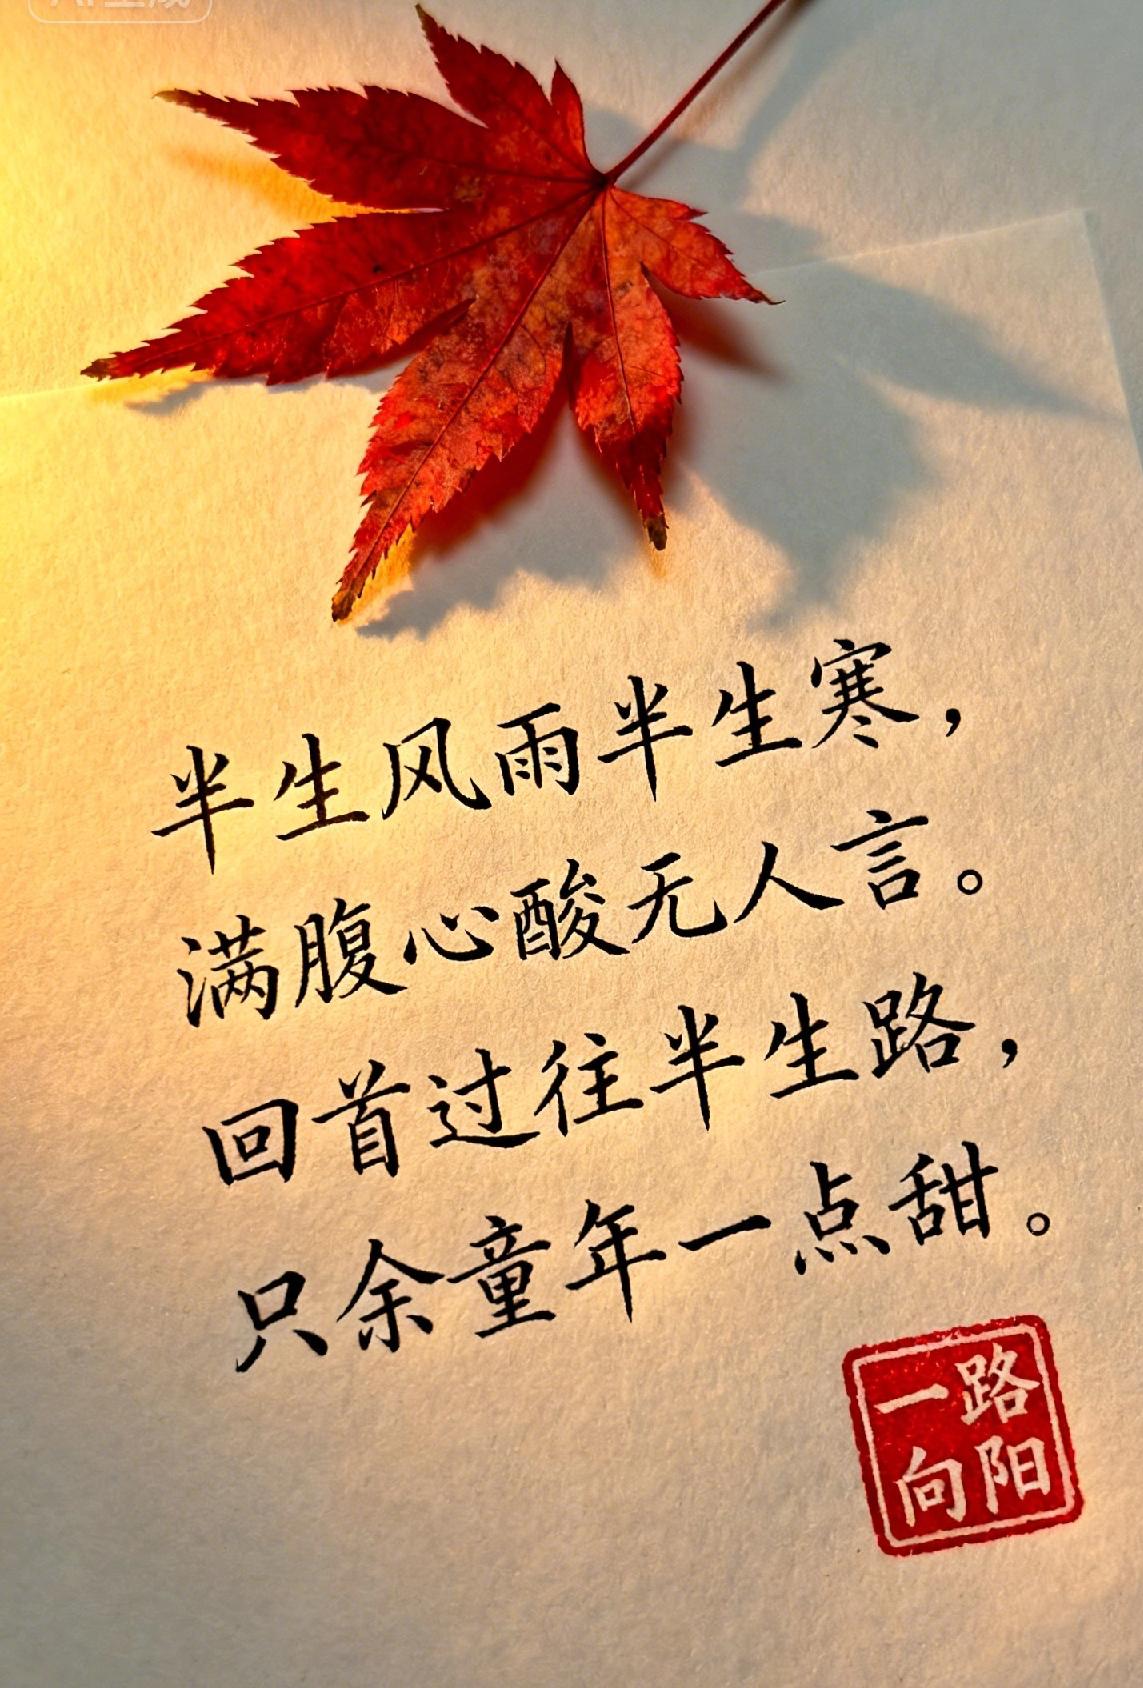 半生风雨半生寒，
满腹心酸无人言。
回首过往半生路，
只余童年一点甜。
一路
向阳